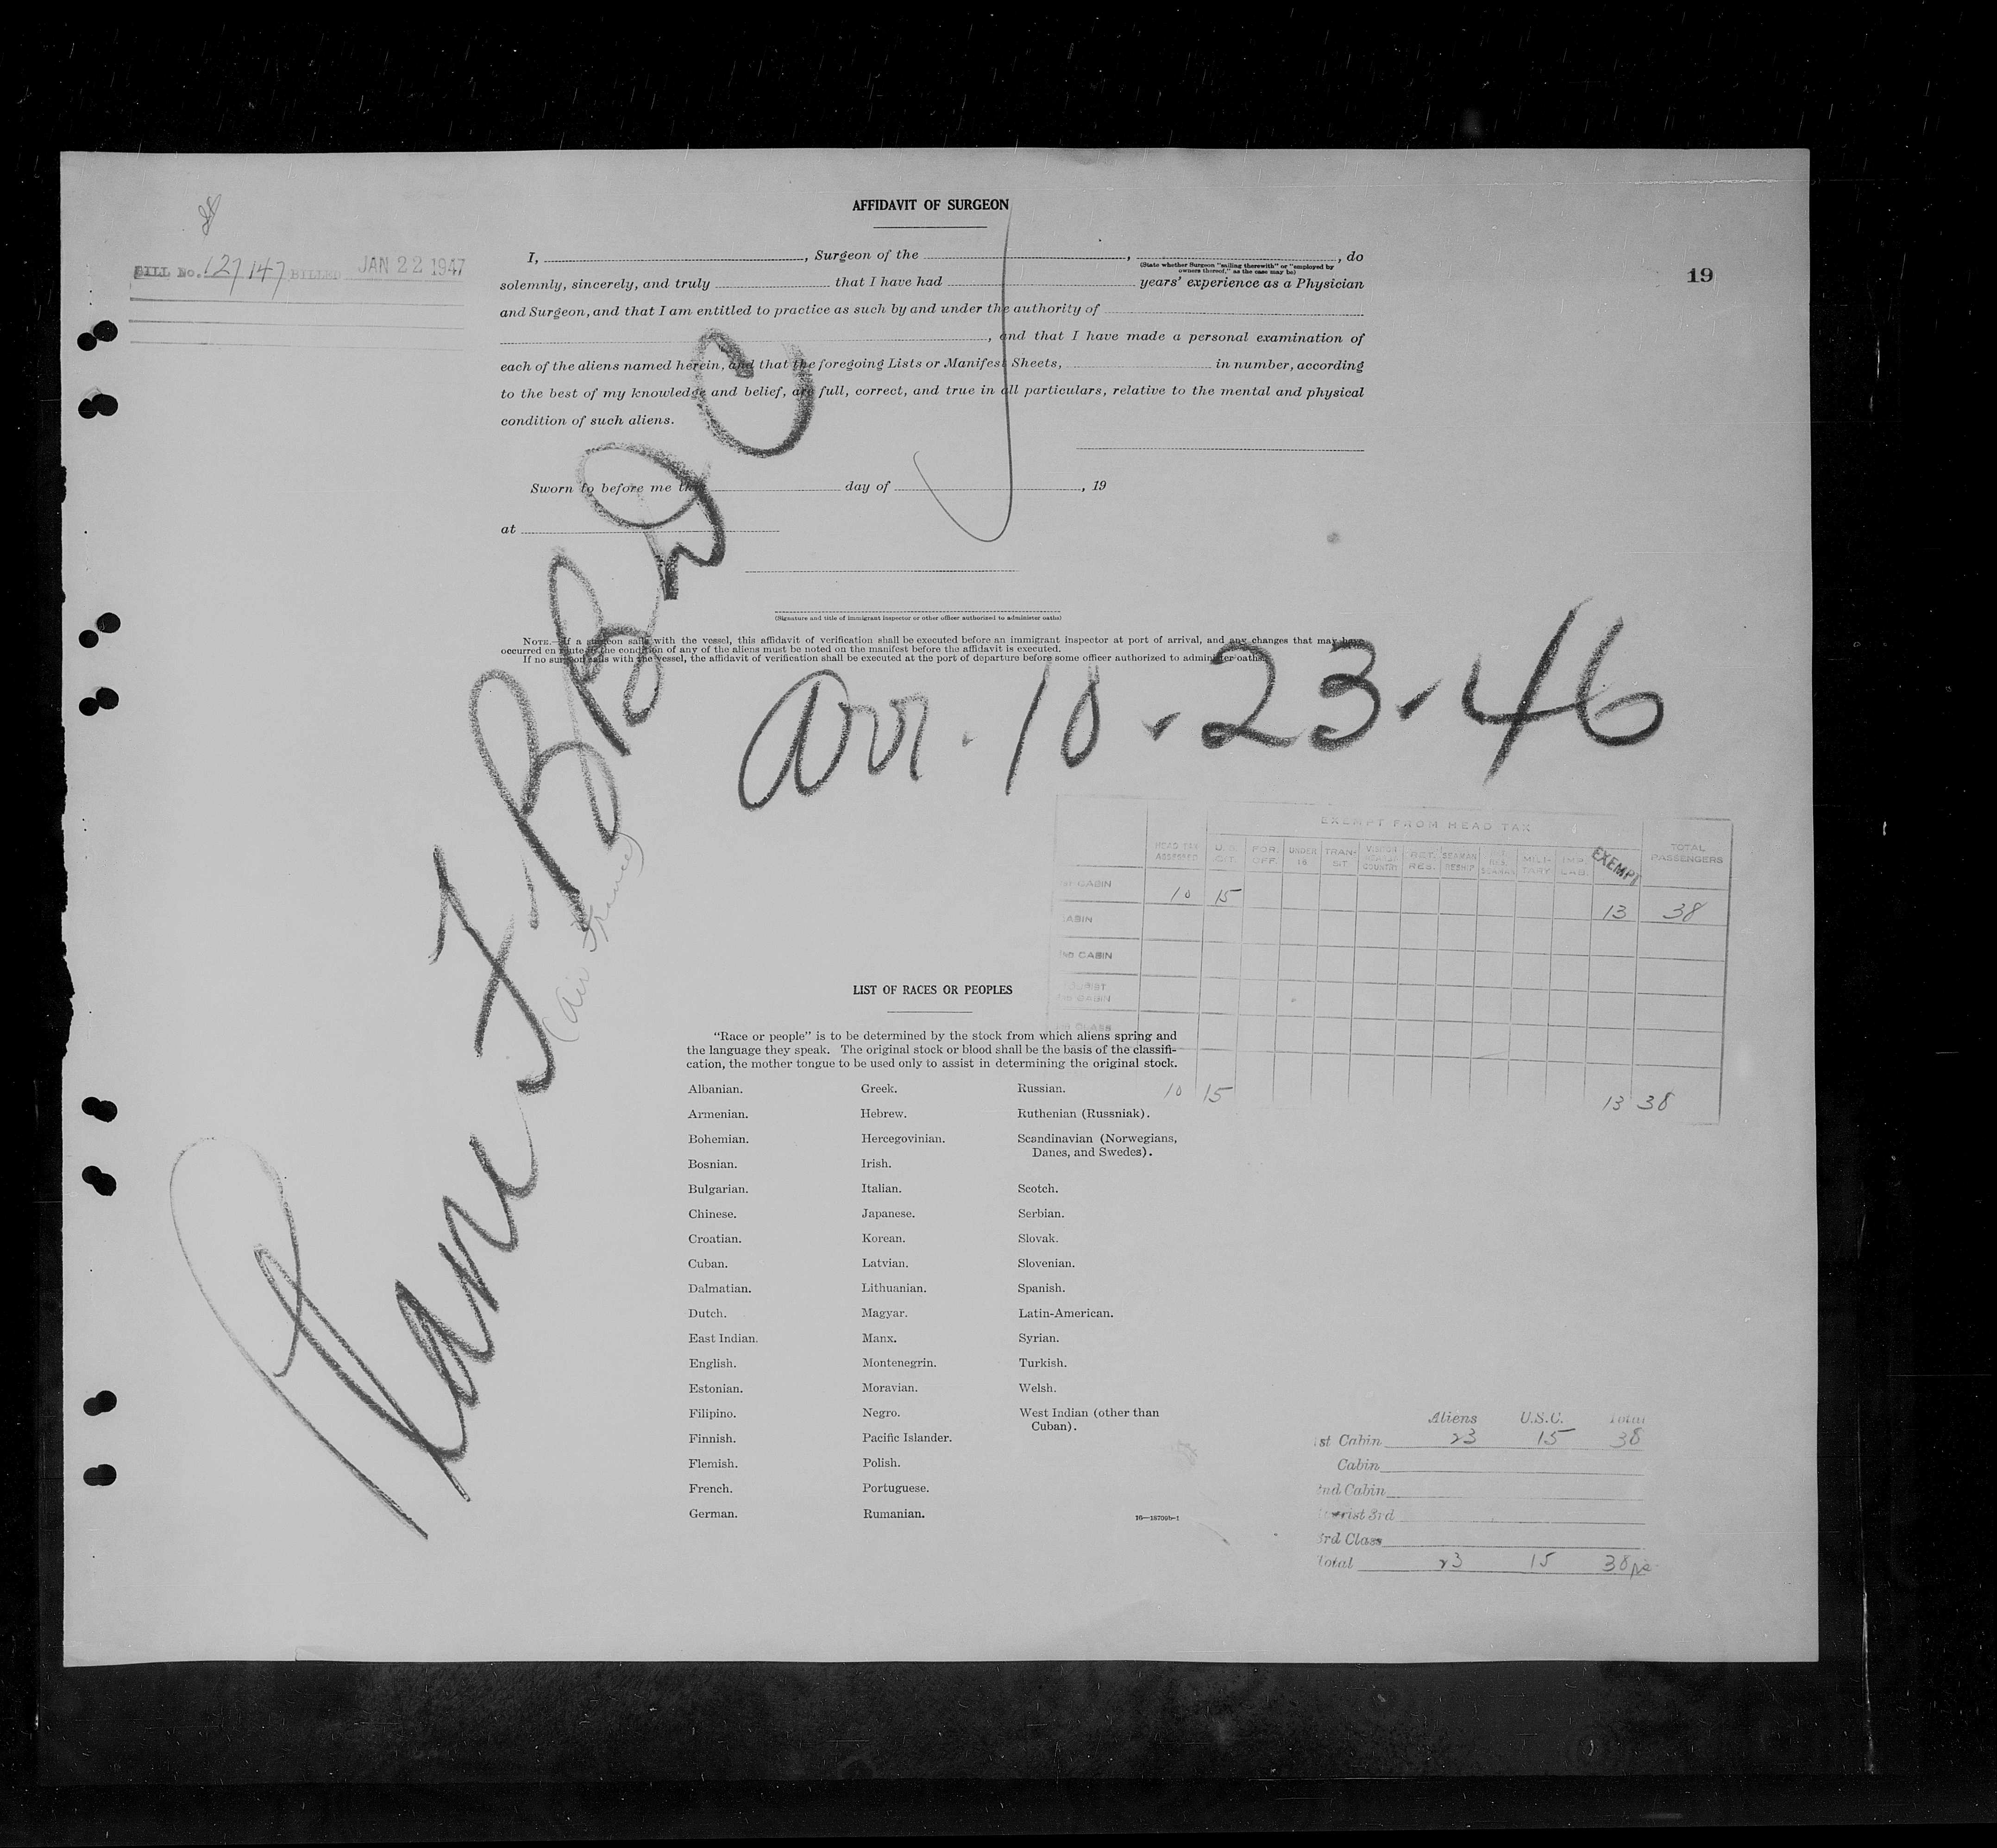 AFFIDAVIT OF SURGEON
BILL No. 127147 BILLED JAN 22 1947
19
I, , Surgeon of the , , do
(State whether Surgeon "sailing therewith" or "employed by
owners thereof," as the case may be)
solemnly, sincerely, and truly that I have had years' experience as a Physician
and Surgeon, and that I am entitled to practice as such by and under the authority of
, and that I have made a personal examination of
each of the aliens named herein, and that the foregoing Lists or Manifest Sheets, in number, according
to the best of my knowledge and belief, are full, correct, and true in all particulars, relative to the mental and physical
condition of such aliens.
Sworn to before me this day of , 19
at
(Signature and title of immigrant inspector or other officer authorized to administer oaths)
NOTE.—If a surgeon sails with the vessel, this affidavit of verification shall be executed before an immigrant inspector at port of arrival, and any changes that may have
occurred en route in the condition of any of the aliens must be noted on the manifest before the affidavit is executed.
If no surgeon sails with the vessel, the affidavit of verification shall be executed at the port of departure before some officer authorized to administer oaths.
Plane F-BBDC
(Air France)
arr. 10-23-46
EXEMPT FROM HEAD TAX
HEAD TAX ASSESSED U.S. CIT. FOR. OFF. UNDER 16 TRAN-SIT RET. RES. SEAMAN RESHIP MILI-TARY EXEMPT TOTAL PASSENGERS
1ST CABIN 10 15 13 38
CABIN
2ND CABIN
TOURIST
3RD CABIN
3RD CLASS
10 15 13 38
LIST OF RACES OR PEOPLES
"Race or people" is to be determined by the stock from which aliens spring and
the language they speak. The original stock or blood shall be the basis of the classifi-
cation, the mother tongue to be used only to assist in determining the original stock.
Albanian.
Armenian.
Bohemian.
Bosnian.
Bulgarian.
Chinese.
Croatian.
Cuban.
Dalmatian.
Dutch.
East Indian.
English.
Estonian.
Filipino.
Finnish.
Flemish.
French.
German.
Greek.
Hebrew.
Hercegovinian.
Irish.
Italian.
Japanese.
Korean.
Latvian.
Lithuanian.
Magyar.
Manx.
Montenegrin.
Moravian.
Negro.
Pacific Islander.
Polish.
Portuguese.
Rumanian.
Russian.
Ruthenian (Russniak).
Scandinavian (Norwegians,
Danes, and Swedes).
Scotch.
Serbian.
Slovak.
Slovenian.
Spanish.
Latin-American.
Syrian.
Turkish.
Welsh.
West Indian (other than
Cuban).
16—18709b-1
Aliens U.S.C. Total
1st Cabin 23 15 38
Cabin
2nd Cabin
Tourist 3rd
3rd Class
Total 23 15 38